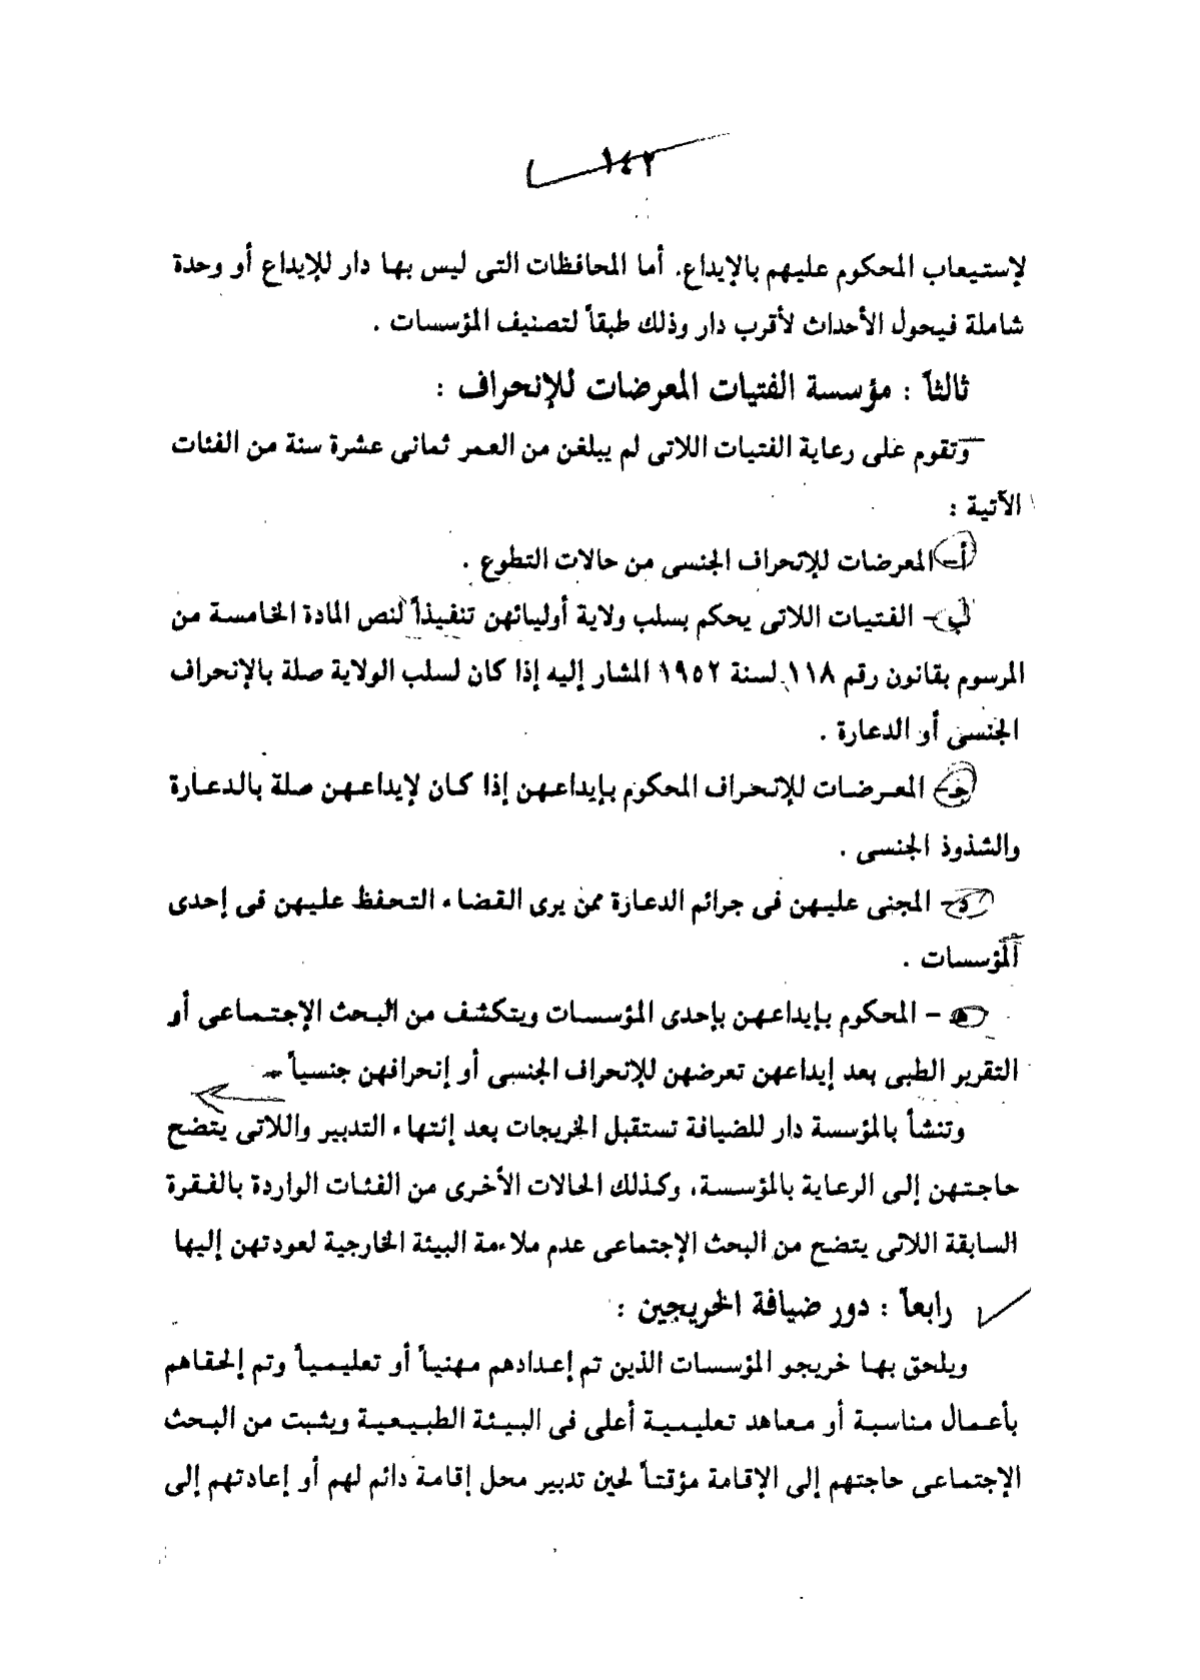 ١٤٢
لإستيعاب المحكوم عليهم بالإيداع. أما المحافظات التى ليس بها دار للإيداع أو وحدة
شاملة فيحول الأحداث لأقرب دار وذلك طبقاً لتصنيف المؤسسات .
ثالثاً : مؤسسة الفتيات المعرضات للإنحراف :
وتقوم على رعاية الفتيات اللاتى لم يبلغن من العمر ثمانى عشرة سنة من الفئات
الآتية :
أ- المعرضات للإنحراف الجنسى من حالات التطوع .
ب- الفتيات اللاتى يحكم بسلب ولاية أوليائهن تنفيذاً لنص المادة الخامسة من
المرسوم بقانون رقم ١١٨ لسنة ١٩٥٢ المشار إليه إذا كان لسلب الولاية صلة بالإنحراف
الجنسى أو الدعارة .
جـ- المعرضات للإنحراف المحكوم بإيداعهن إذا كان لإيداعهن صلة بالدعارة
والشذوذ الجنسى .
د- المجنى عليهن فى جرائم الدعارة ممن يرى القضاء التحفظ عليهن فى إحدى
المؤسسات .
هـ - المحكوم بإيداعهن بإحدى المؤسسات ويتكشف من البحث الإجتماعى أو
التقرير الطبى بعد إيداعهن تعرضهن للإنحراف الجنسى أو إنحرافهن جنسياً -
وتنشأ بالمؤسسة دار للضيافة تستقبل الخريجات بعد إنتهاء التدبير واللاتى يتضح
حاجتهن إلى الرعاية بالمؤسسة، وكذلك الحالات الأخرى من الفئات الواردة بالفقرة
السابقة اللاتى يتضح من البحث الإجتماعى عدم ملاءمة البيئة الخارجية لعودتهن إليها
رابعاً : دور ضيافة الخريجين :
ويلحق بها خريجو المؤسسات الذين تم إعدادهم مهنياً أو تعليمياً وتم إلحقاهم
بأعمال مناسبة أو معاهد تعليمية أعلى فى البيئة الطبيعية ويثبت من البحث
الإجتماعى حاجتهم إلى الإقامة مؤقتاً لحين تدبير محل إقامة دائم لهم أو إعادتهم إلى